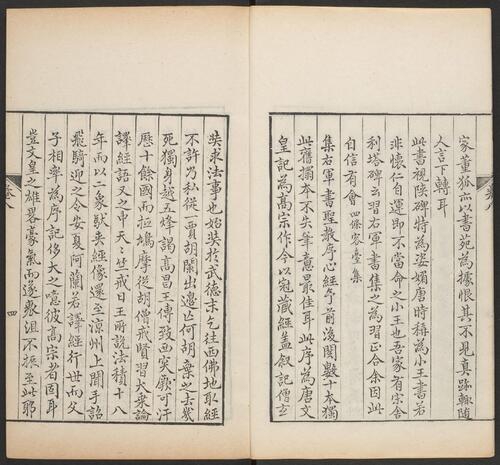 家董狐亦以書苑為據恨其不見真跡輒隨
人言下轉耳
此書視陝碑特為姿媚唐時稱為小王書若
非懷仁自運即不當命之小王也吾家有宗舍
利塔碑云習右軍書集之為習正合余因此
自信有會 四條容臺集
集右軍書聖教序心經今前後閱數十本獨
此舊搨本不失筆意最佳耳此序為唐文
皇記為高宗作今以冠藏經蓋叙記僧玄
奘求法事也始奘於武德末乞往西佛地取經
不許乃私從一賈胡闌出邊亡何胡棄之去幾
死獨身越五烽謁高昌王傳致西突厥可汗
歷十餘國而拉鳩摩從胡僧戒賢習大乘論
譯經語又之中天竺戒日王所說法積十八
年而以二象馱夾經像還至涼州上聞手詔
飛騎迎之令安夏阿蘭若譯經行世而父
子相率為序記侈大之噫彼高宗者固耳
豈文皇之雄畧豪氣而遂衆沮不振至此耶
四